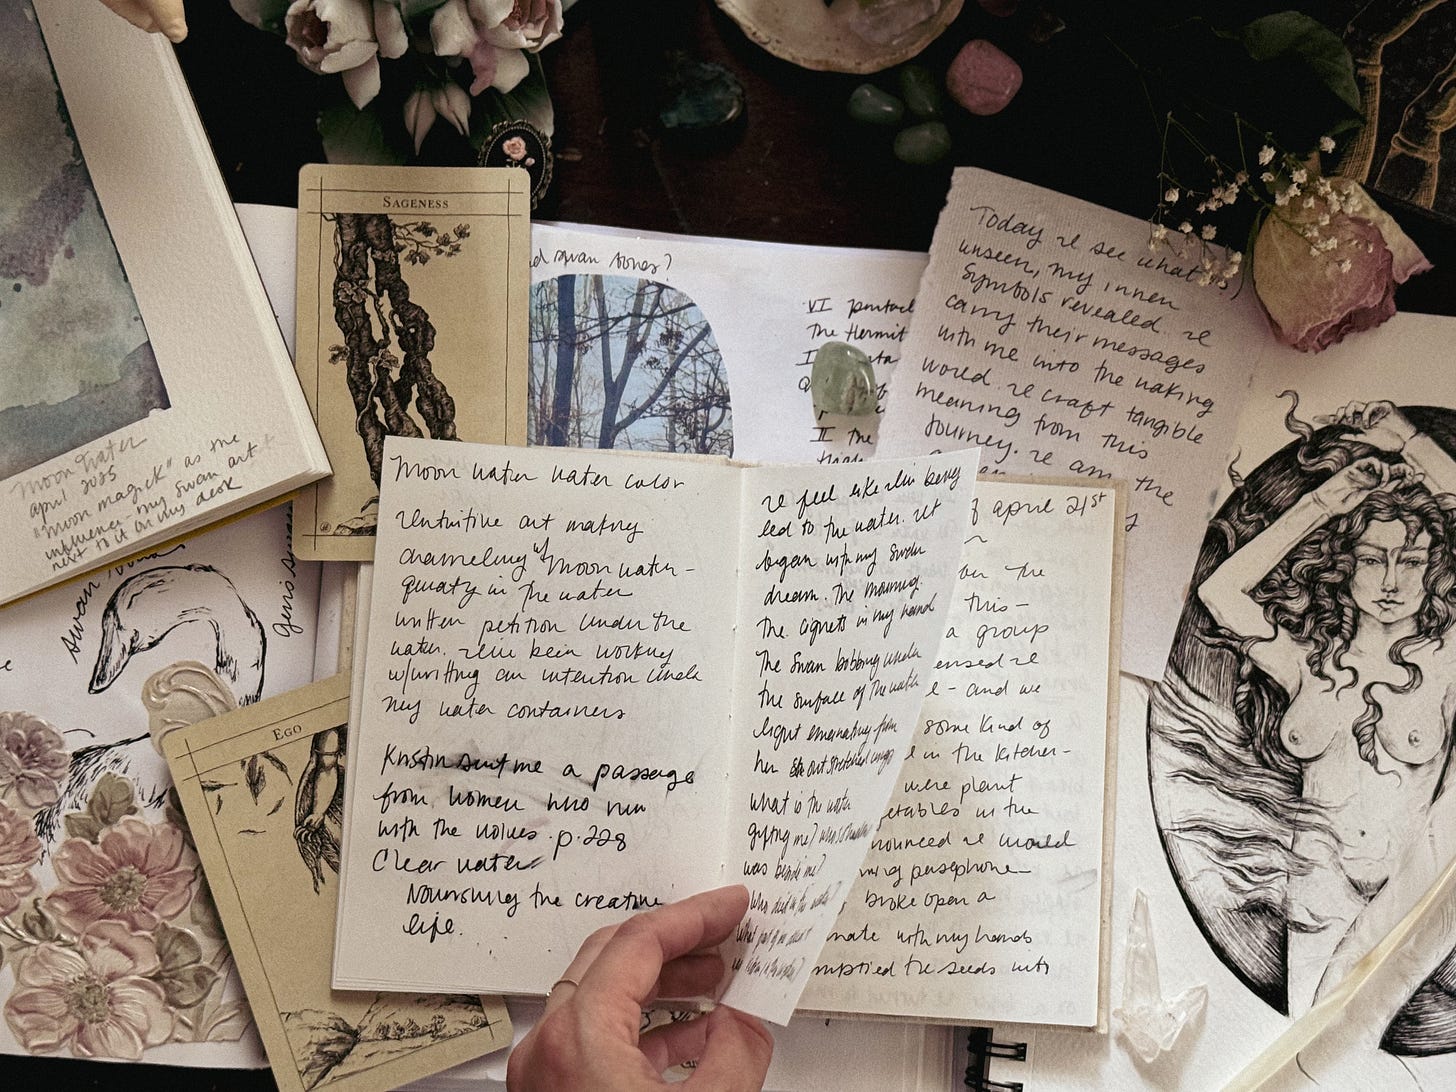 SAGENESS
d swan bones?
VI pentacl
The Hermit
II The
Today I see what is
unseen, my inner
symbols revealed. I
carry their messages
with me into the waking
world. I craft tangible
meaning from this
journey. I am the
Moon Water
april 2025
"moon magick" as the
influence, my swan art
next to it on my desk
swan
EGO
Moon water water color
Intuitive art making
channeling w/ moon water -
quartz in the water
written petition under the
water. I've been working
w/ writing an intention under
my water containers
Kristin sent me a passage
from women who run
with the wolves. p. 228
Clear water
Nourishing the creative
life.
I feel like I'm being
led to the water. It
began with my swan
dream. The morning.
The cignets in my hand
The swan bobbing under
the surface of the water
light emanating from
her outstretched wings
what is the water
gifting me?
was beside me?
of april 21st
on the
this -
a group
ensed I
e - and we
some kind of
e in the kitchen -
were plant
etables in the
nounced I would
ing persephone -
broke open a
nate with my hands
mptied the seeds into